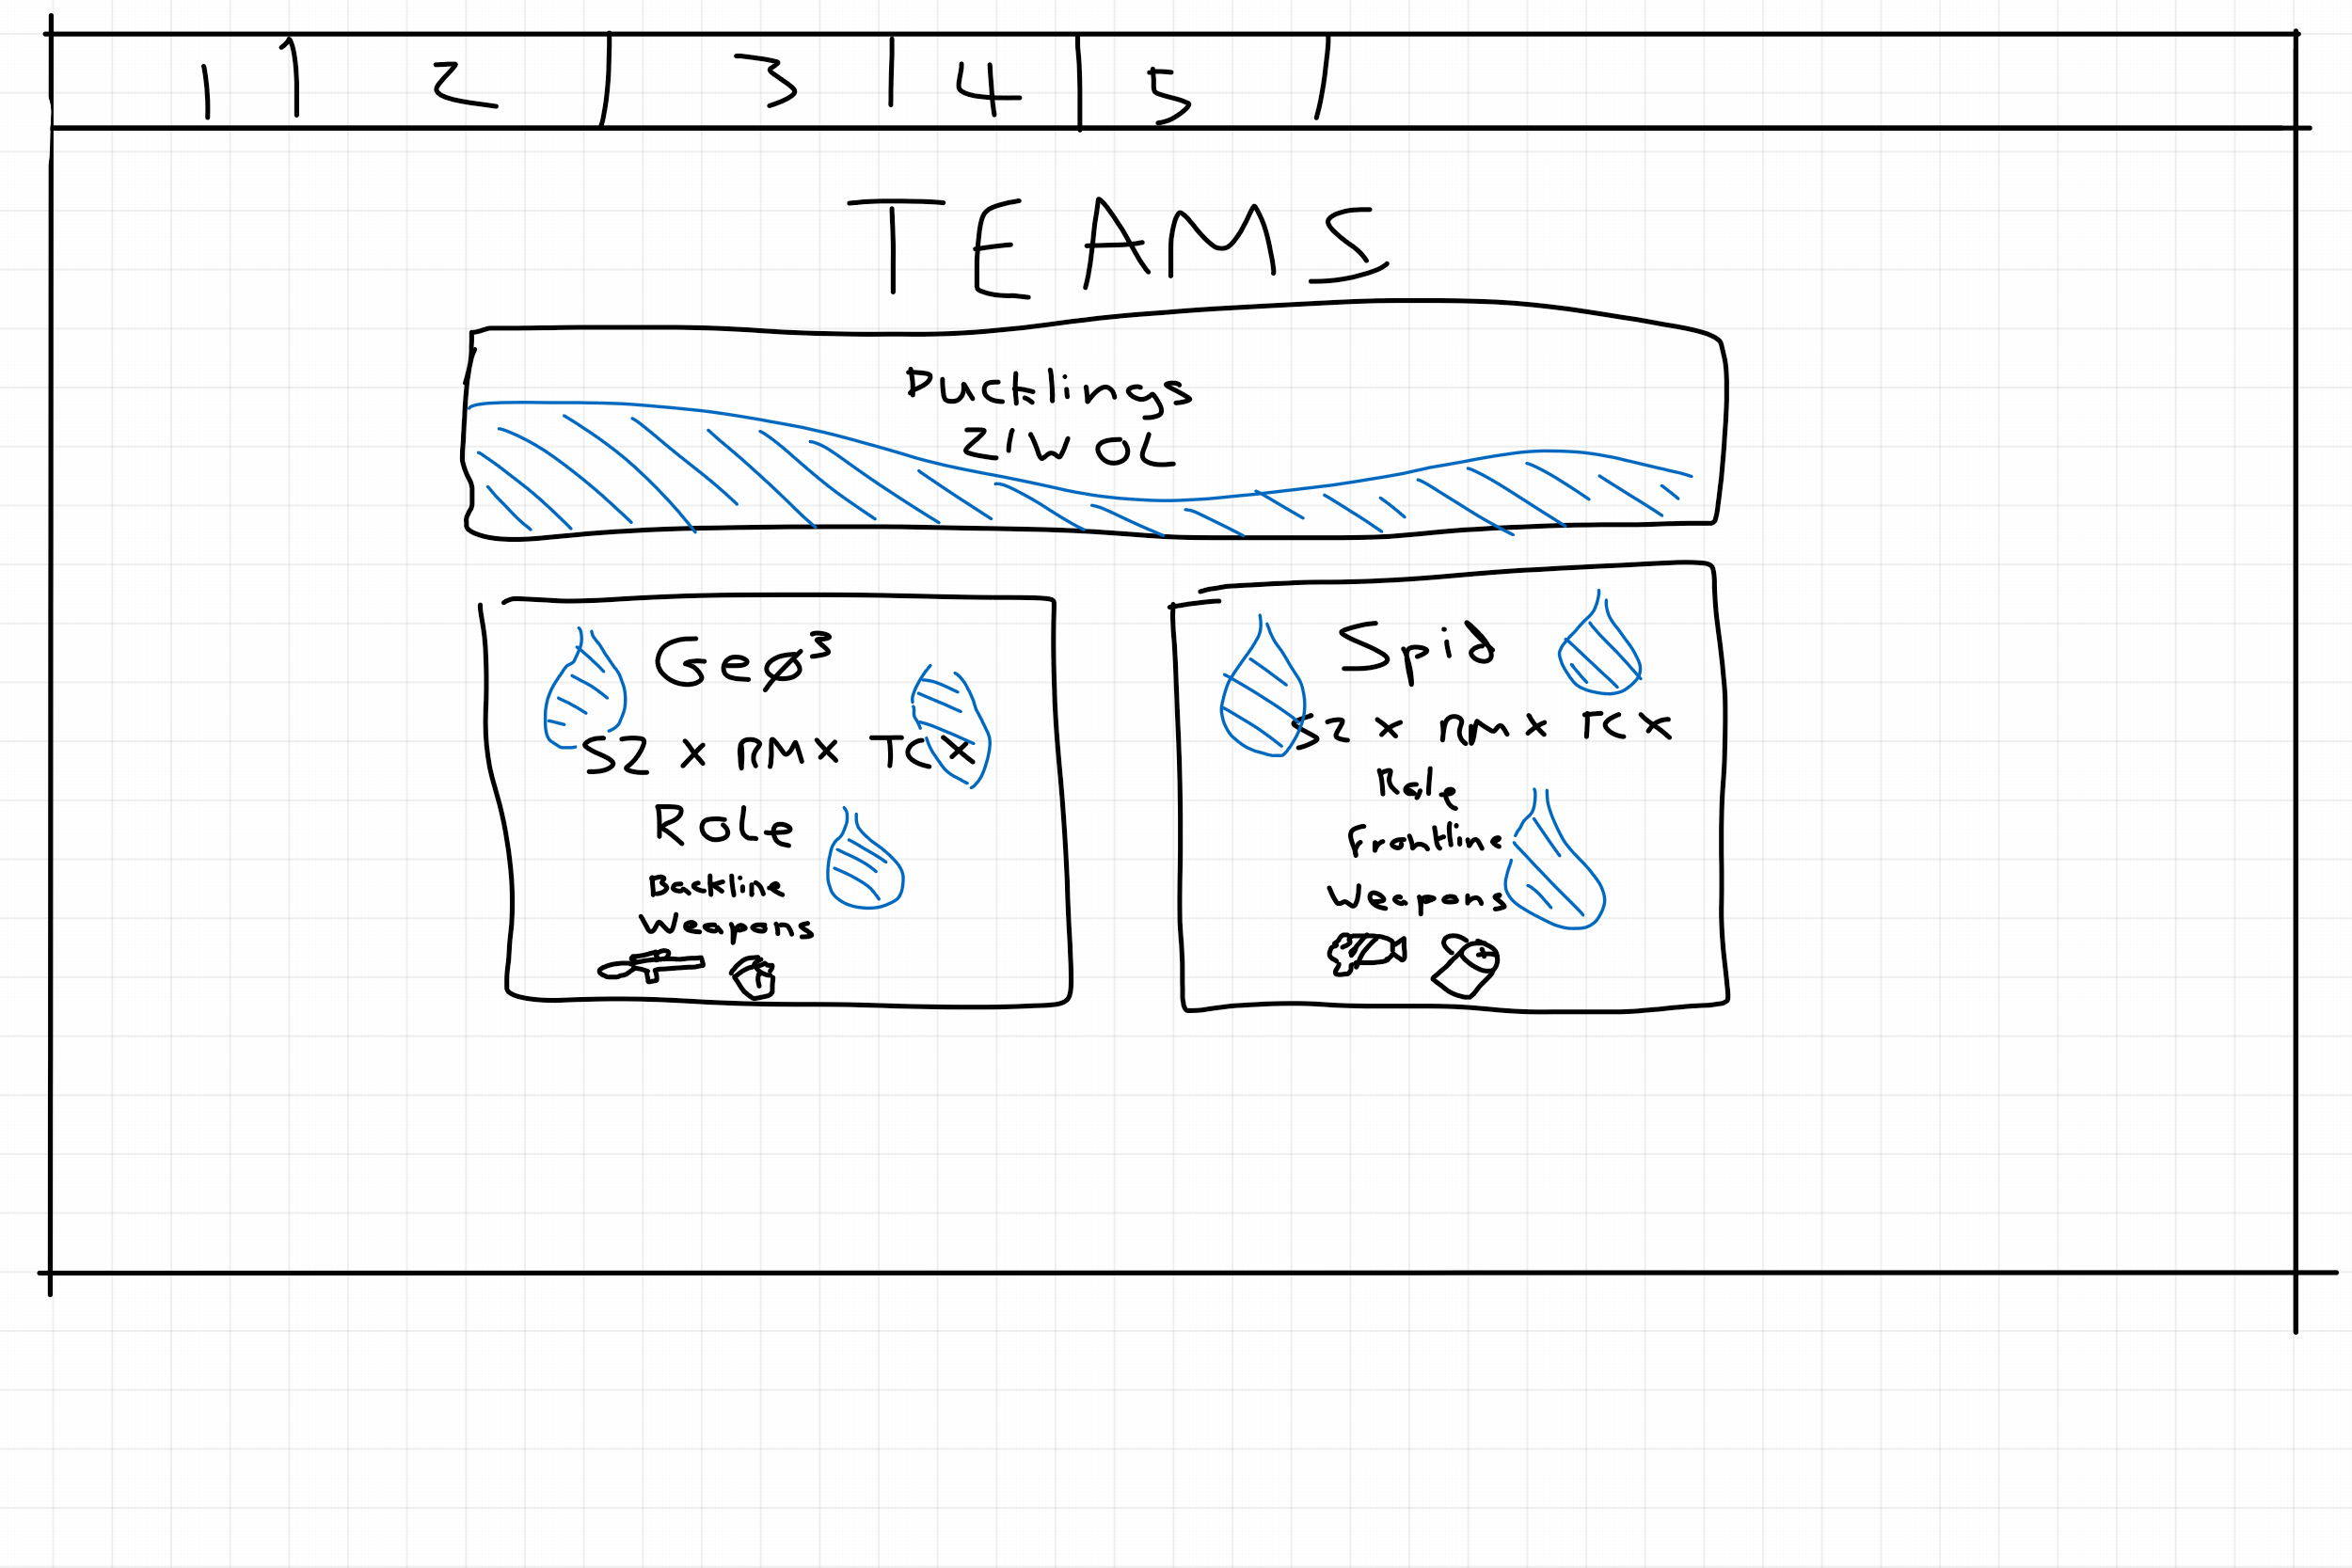 1 2 3 4 5
TEAMS
Ducklings
21W 0L
Geø³
SZ x RM x TC x
Role
Backline
Weapons
Spid
SZ x RM x TC x
Role
Frontline
Weapons